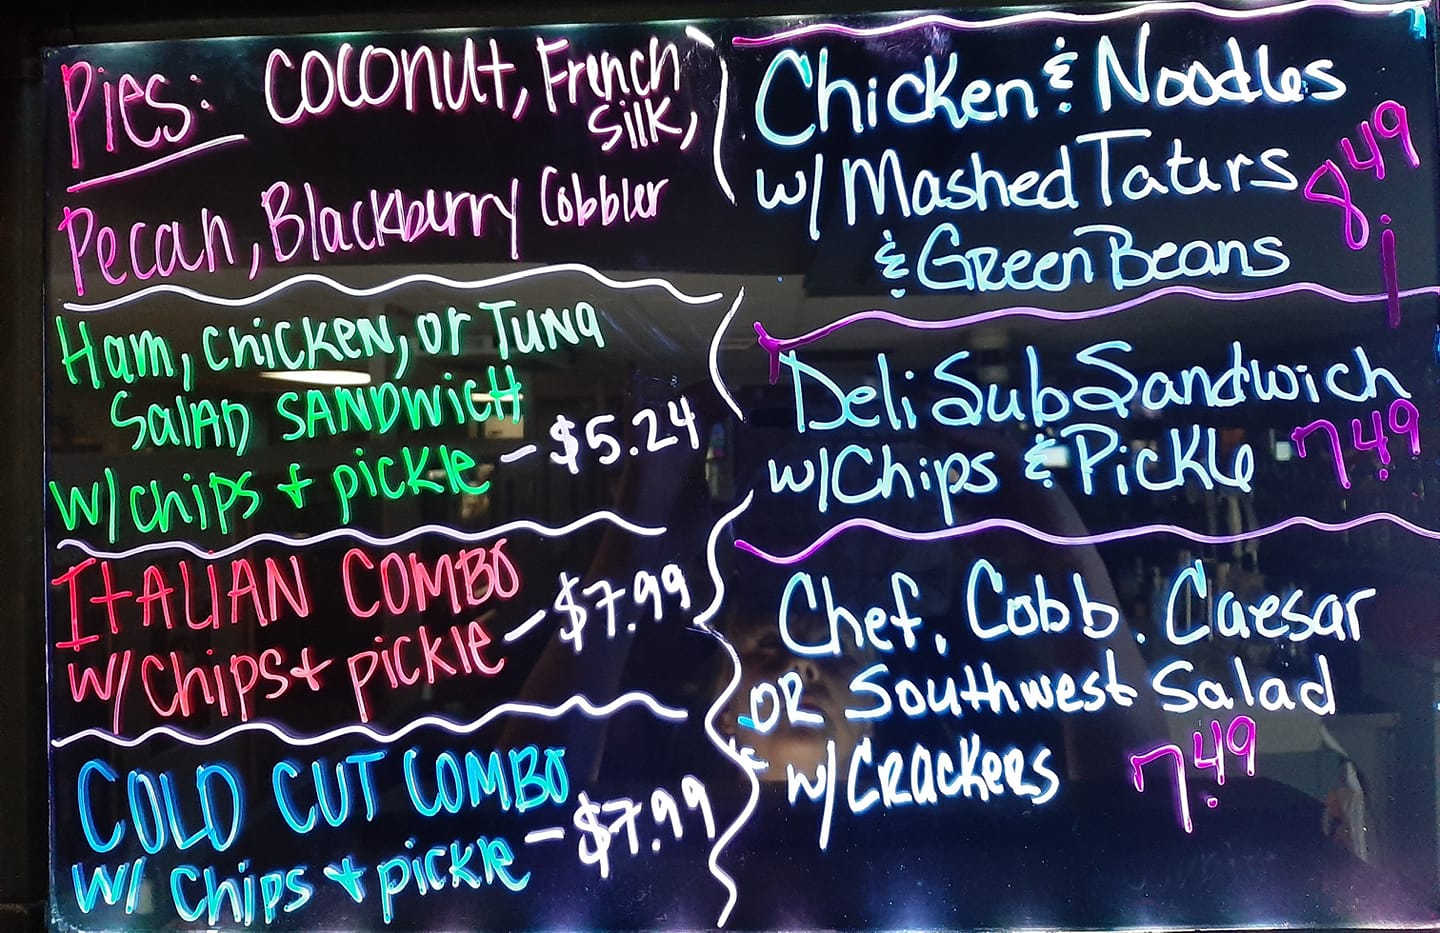 Pies: Coconut, French
Silk,
Pecan, Blackberry Cobbler
Ham, Chicken, or Tuna
Salad Sandwich
w/ chips + pickle - $5.24
Italian Combo
w/ chips + pickle - $7.99
Cold Cut Combo
w/ Chips + pickle - $7.99
Chicken & Noodles
w/ Mashed Taters 8.49
& Green Beans
Deli Sub Sandwich
w/ Chips & Pickle 7.49
Chef, Cobb, Caesar
OR Southwest Salad
w/ Crackers 7.49